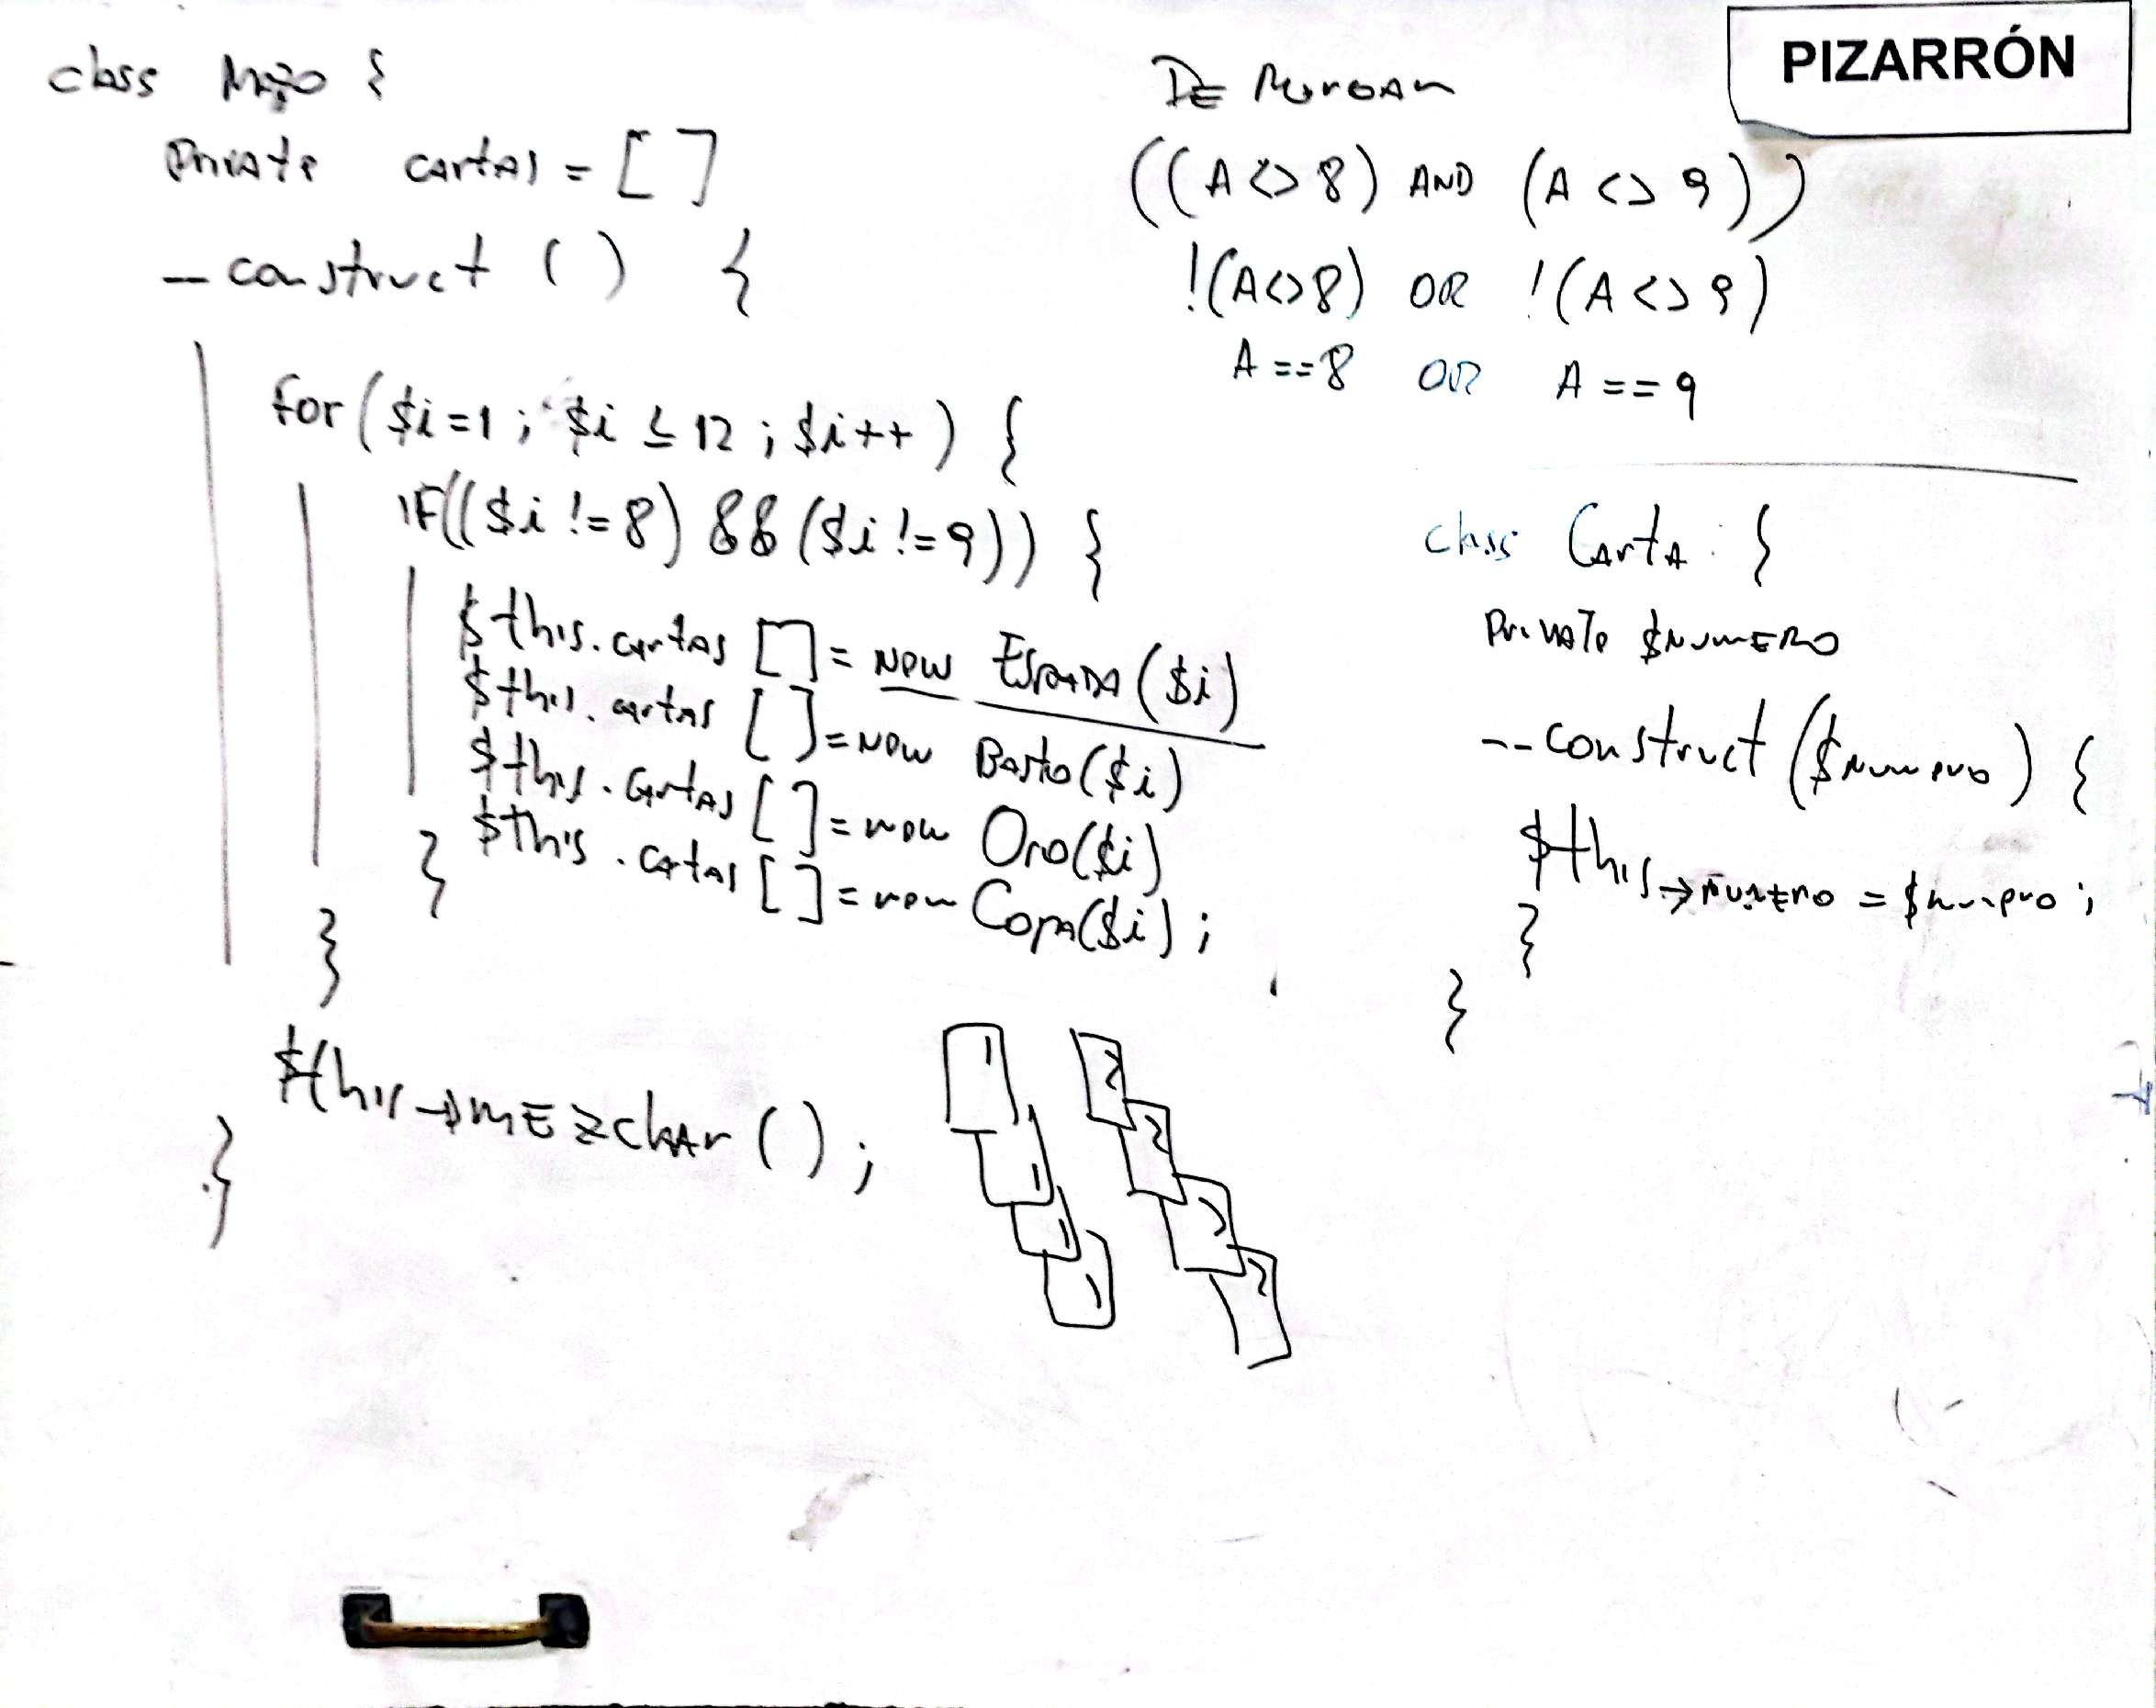 PIZARRÓN
class Mazo {
Private cartas = []
__construct () {
for ($i=1; $i ≤ 12; $i++) {
IF(($i !=8) && ($i !=9)) {
$this.cartas []= new Espada($i)
$this.cartas []=new Basto($i)
$this.cartas []=new Oro($i)
} $this.cartas []=new Copa($i);
}
$this→mEzclar();
}
1 1 1 1
2 2 2 2
DE MorGan
((A <> 8) AND (A <> 9))
!(A<>8) OR !(A <> 9)
A ==8 OR A ==9
class Carta {
Private $NumERO
--construct ($Numero) {
$this→NumEro = $numero;
}
}